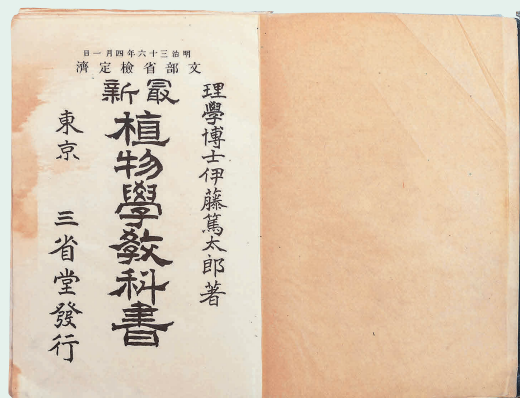 明治三十六年四月一日
文部省檢定濟
理學博士伊藤篤太郎著
最新
植物學教科書
東京 三省堂發行